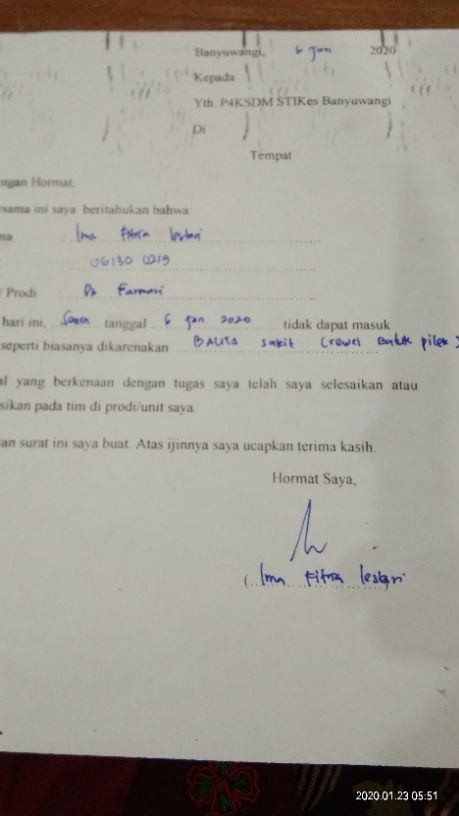 Banyuwangi, 6 Jan 2020
Kepada
Yth. P4KSDM STIKes Banyuwangi
Di
Tempat
ngan Hormat,
sama ini saya beritahukan bahwa:
na : Ima Fitria lestari
06130 0219
/ Prodi : D3 Farmasi
hari ini, Senin tanggal 6 jan 2020 tidak dapat masuk
seperti biasanya dikarenakan BALITA sakit (rewel Batuk pilek)
al yang berkenaan dengan tugas saya telah saya selesaikan atau
sikan pada tim di prodi/unit saya.
ian surat ini saya buat. Atas ijinnya saya ucapkan terima kasih.
Hormat Saya,
(Ima Fitria lestari
2020.01.23 05:51